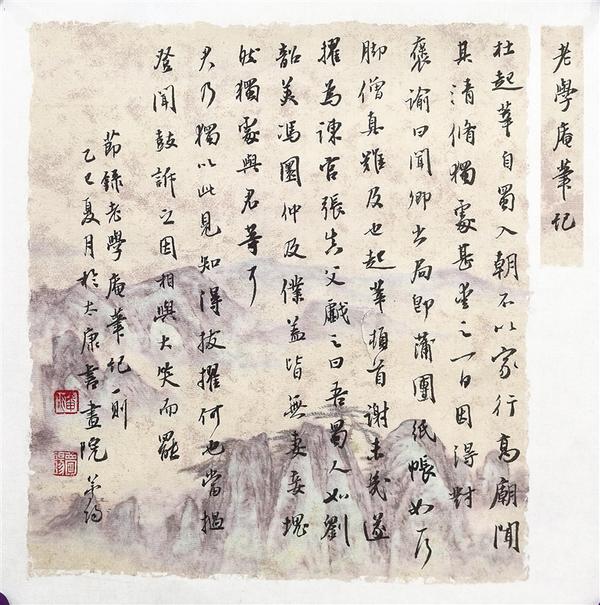 老學庵筆記
杜起莘自蜀入朝不以家行高廟聞
其清脩獨處甚愛之一日因得對
褒諭曰聞卿出局即蒲團紙帳如行
脚僧真難及也起莘頓首謝未幾遂
擢為諫官張真父戲之曰吾蜀人如劉
韶美馮圜仲及僕蓋皆無妻妾塊
然獨處與君等耳
君乃獨以此見知得拔擢何也當撾
登聞鼓訴之因相與大笑而罷
節錄老學庵筆記一則
乙巳夏月於太康書畫院